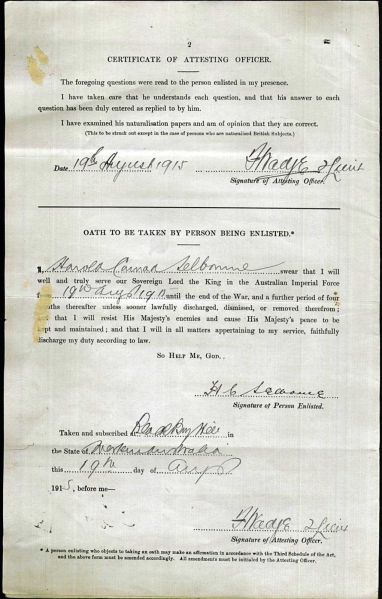 2
CERTIFICATE OF ATTESTING OFFICER.
The foregoing questions were read to the person enlisted in my presence.
I have taken care that he understands each question, and that his answer to each
question has been duly entered as replied to by him.
I have examined his naturalisation papers and am of opinion that they are correct.
(This to be struck out except in the case of persons who are naturalised British Subjects.)
Date 19th August 1915
F Wadge 2 Lieut
Signature of Attesting Officer.
OATH TO BE TAKEN BY PERSON BEING ENLISTED.*
I, Harold Conrad Selbourne swear that I will
well and truly serve our Sovereign Lord the King in the Australian Imperial Force
19th Augt 1915 until the end of the War, and a further period of four
thereafter unless sooner lawfully discharged, dismissed, or removed therefrom;
that I will resist His Majesty's enemies and cause His Majesty's peace to be
kept and maintained; and that I will in all matters appertaining to my service, faithfully
discharge my duty according to law.
SO HELP ME, GOD.
H C Selbourne
Signature of Person Enlisted.
Taken and subscribed at Blackboy Hill in
the State of Western Australia
this 19th day of Augt
1915, before me—
F Wadge 2 Lieut
Signature of Attesting Officer.
* A person enlisting who objects to taking an oath may make an affirmation in accordance with the Third Schedule of the Act,
and the above form must be amended accordingly. All amendments must be initialed by the Attesting Officer.